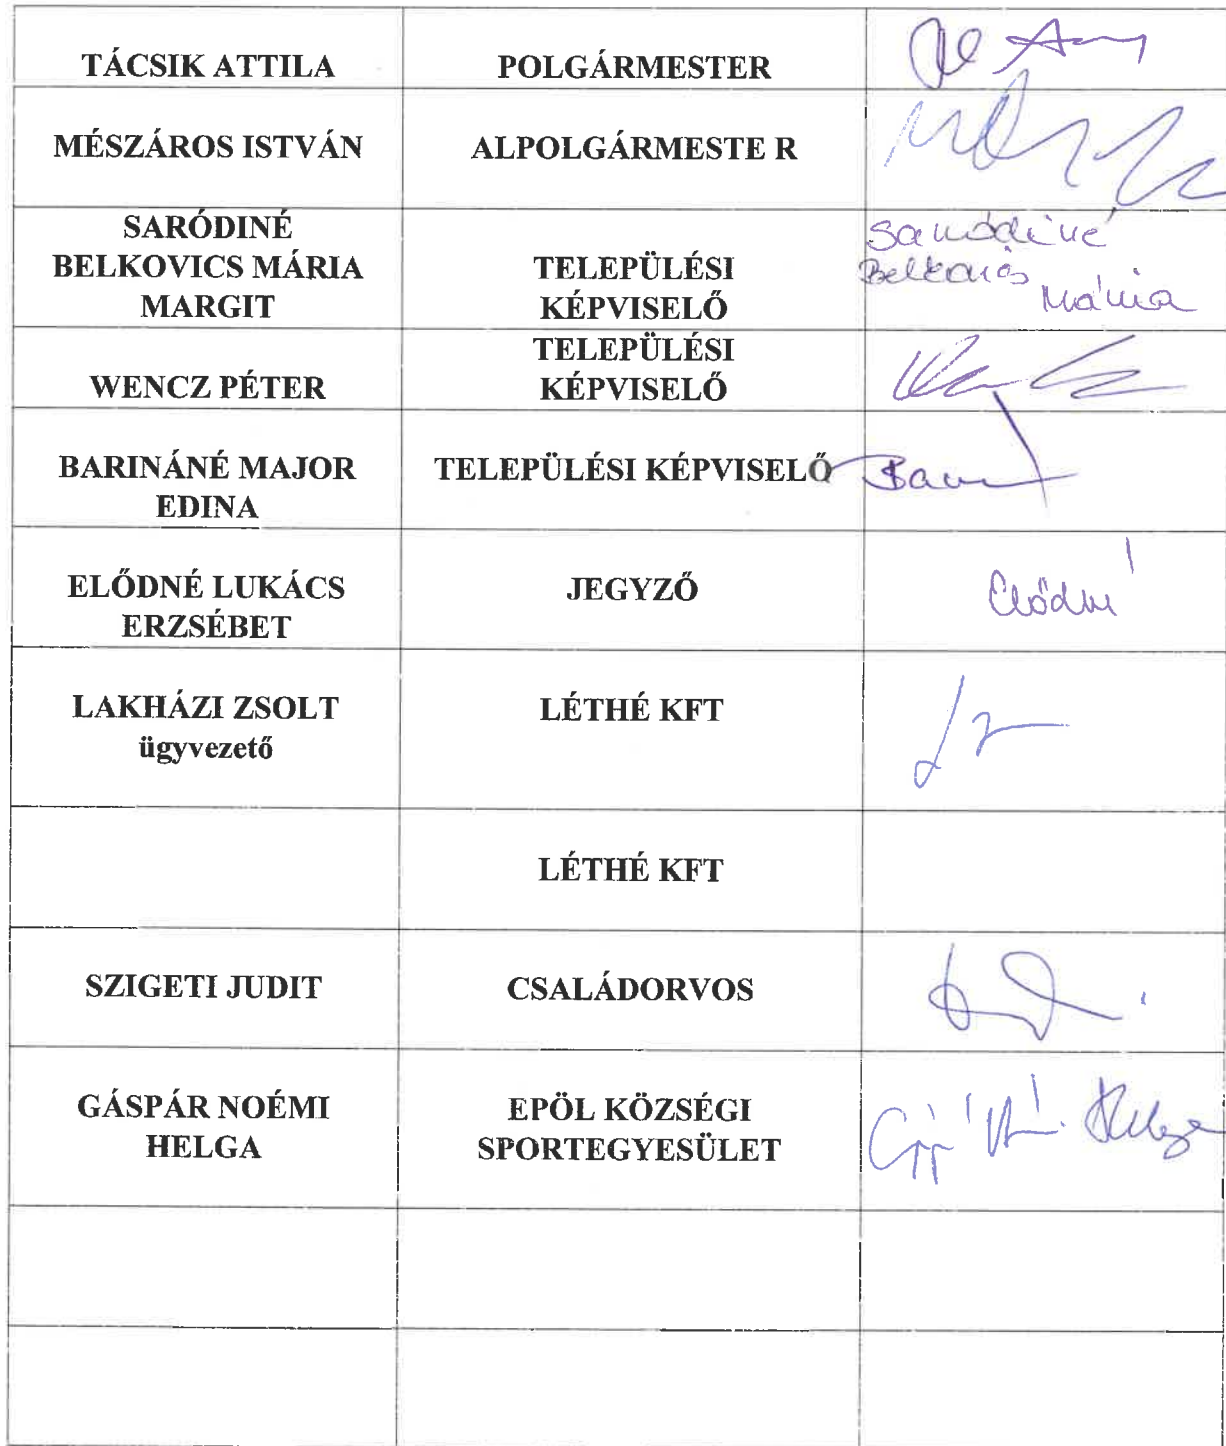 TÁCSIK ATTILA
POLGÁRMESTER
MÉSZÁROS ISTVÁN
ALPOLGÁRMESTE R
SARÓDINÉ
BELKOVICS MÁRIA
MARGIT
TELEPÜLÉSI
KÉPVISELŐ
Saródiné
Belkovics
Mária
WENCZ PÉTER
TELEPÜLÉSI
KÉPVISELŐ
BARINÁNÉ MAJOR
EDINA
TELEPÜLÉSI KÉPVISELŐ
ELŐDNÉ LUKÁCS
ERZSÉBET
JEGYZŐ
Elődné
LAKHÁZI ZSOLT
ügyvezető
LÉTHÉ KFT
LÉTHÉ KFT
SZIGETI JUDIT
CSALÁDORVOS
GÁSPÁR NOÉMI
HELGA
EPÖL KÖZSÉGI
SPORTEGYESÜLET
Helga